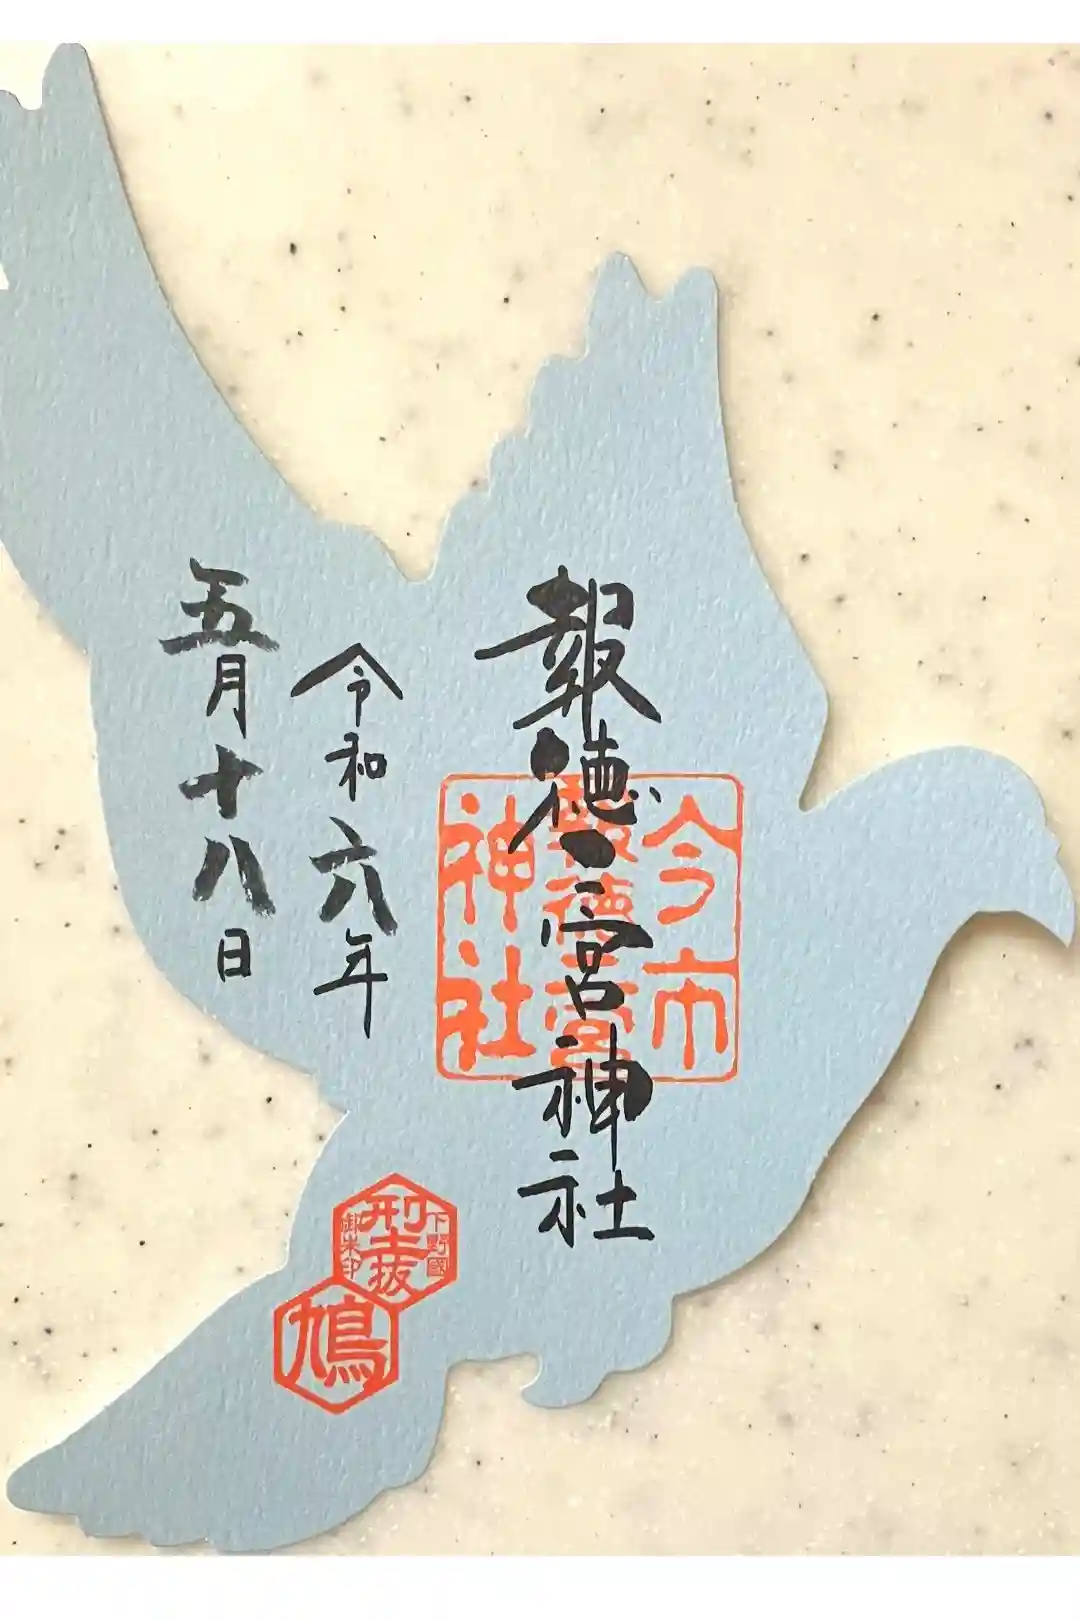 報徳二宮神社
今市
報徳二宮
神社
令和六年
五月十八日
下野國
型抜
御朱印
鳩